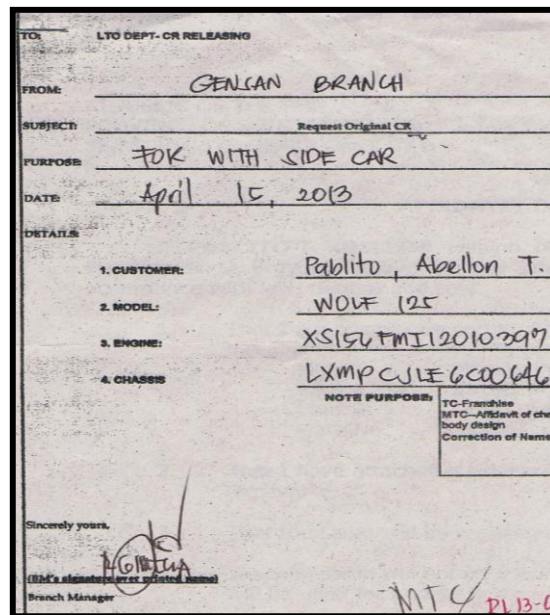 TO: LTO DEPT- CR RELEASING
FROM: GENSAN BRANCH
SUBJECT: Request Original CR
PURPOSE: FOR WITH SIDE CAR
DATE: April 15, 2013
DETAILS:
1. CUSTOMER: Pablito, Abellon T.
2. MODEL: WOLF 125
3. ENGINE: XS156FMI12010397
4. CHASSIS LXMPCJLE6C00646
NOTE PURPOSE: TC-Franchise
MTC--Affidavit of cha
body design
Correction of Name
Sincerely yours,
(BM's signature over printed name)
Branch Manager
MTC